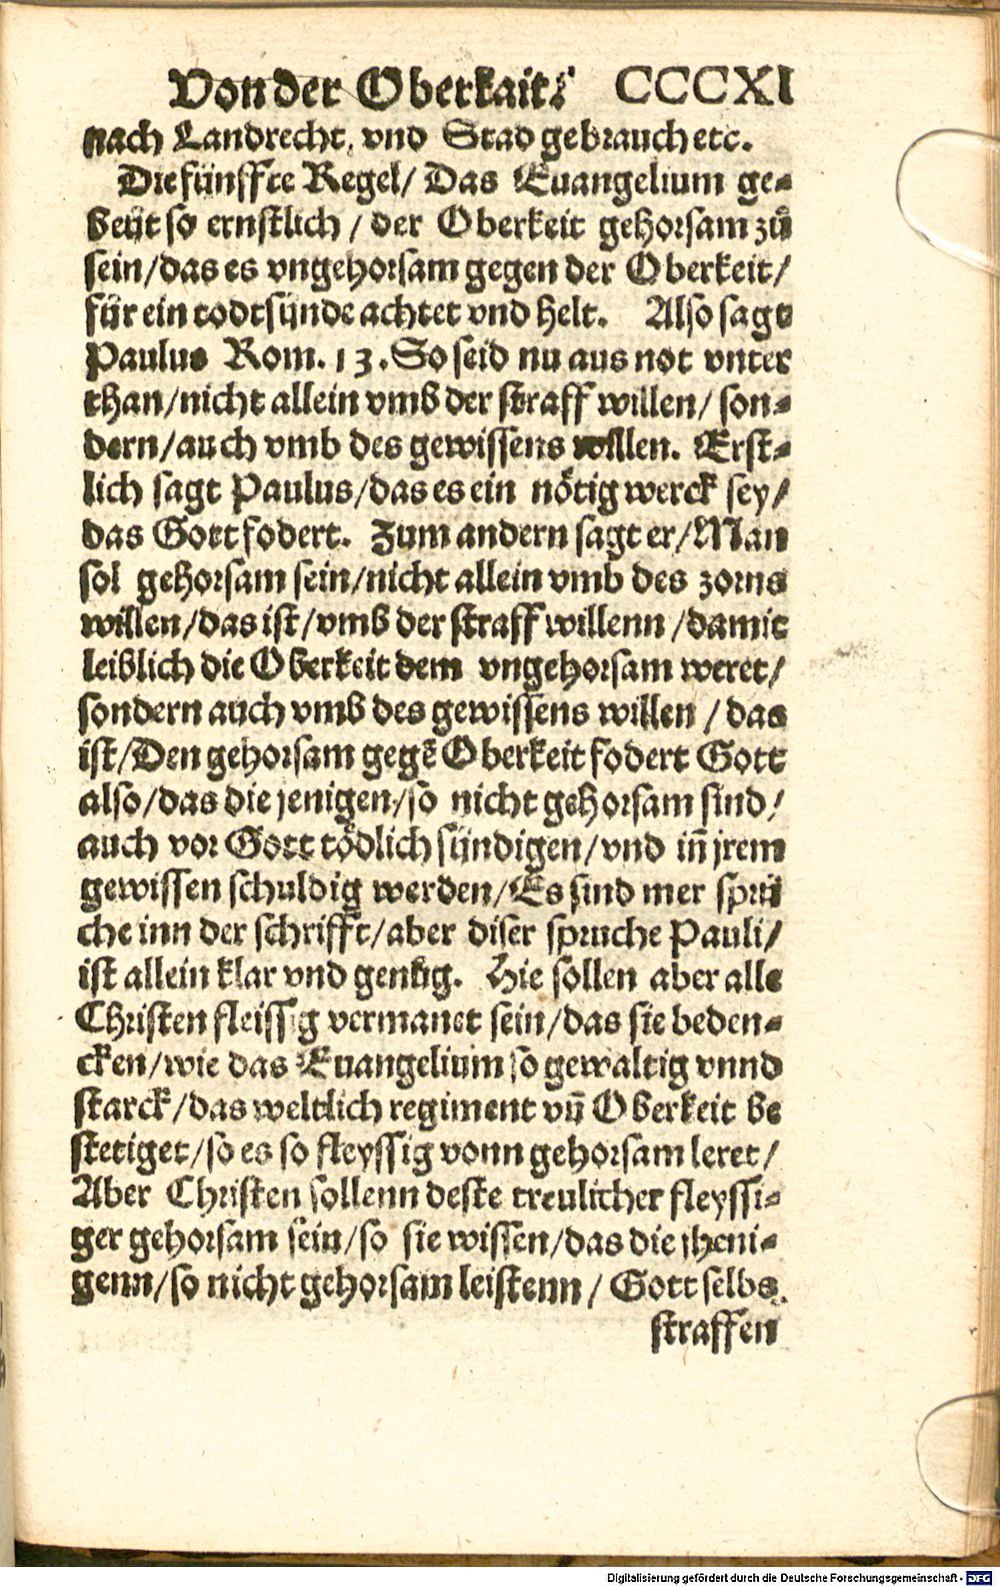 Von der Oberkait. CCCXI
nach Landrecht, vnd Stad gebrauch etc.
Die fünffte Regel/ Das Euangelium ge⸗
beüt so ernstlich / der Oberkeit gehorsam zů
sein/das es vngehorsam gegen der Oberkeit/
für ein todtsünde achtet vnd helt. Also sagt
Paulus Rom. 13. So seid nu aus not vnter
than/nicht allein vmb der straff willen/ son⸗
dern/auch vmb des gewissens willen. Erst⸗
lich sagt Paulus/das es ein nötig werck sey/
das Gott fodert. Zum andern sagt er/Man
sol gehorsam sein/nicht allein vmb des zorns
willen/das ist/vmb der straff willenn /damit
leiblich die Oberkeit dem vngehorsam weret/
sondern auch vmb des gewissens willen / das
ist/Den gehorsam gegē Oberkeit fodert Gott
also/das die jenigen/so nicht gehorsam sind/
auch vor Gott tödlich sündigen/vnd in̄ jrem
gewissen schuldig werden/Es sind mer sprü
che inn der schrifft/aber diser spruche Pauli/
ist allein klar vnd genůg. Hie sollen aber alle
Christen fleissig vermanet sein/das sie beden⸗
cken/wie das Euangelium so gewaltig vnnd
starck/das weltlich regiment vn̄ Oberkeit be
stetiget/so es so fleyssig vonn gehorsam leret/
Aber Christen sollenn deste treulicher fleyssi⸗
ger gehorsam sein/so sie wissen/das die jheni⸗
genn/so nicht gehorsam leistenn / Gott selbs
straffen
Digitalisierung gefördert durch die Deutsche Forschungsgemeinschaft - DFG